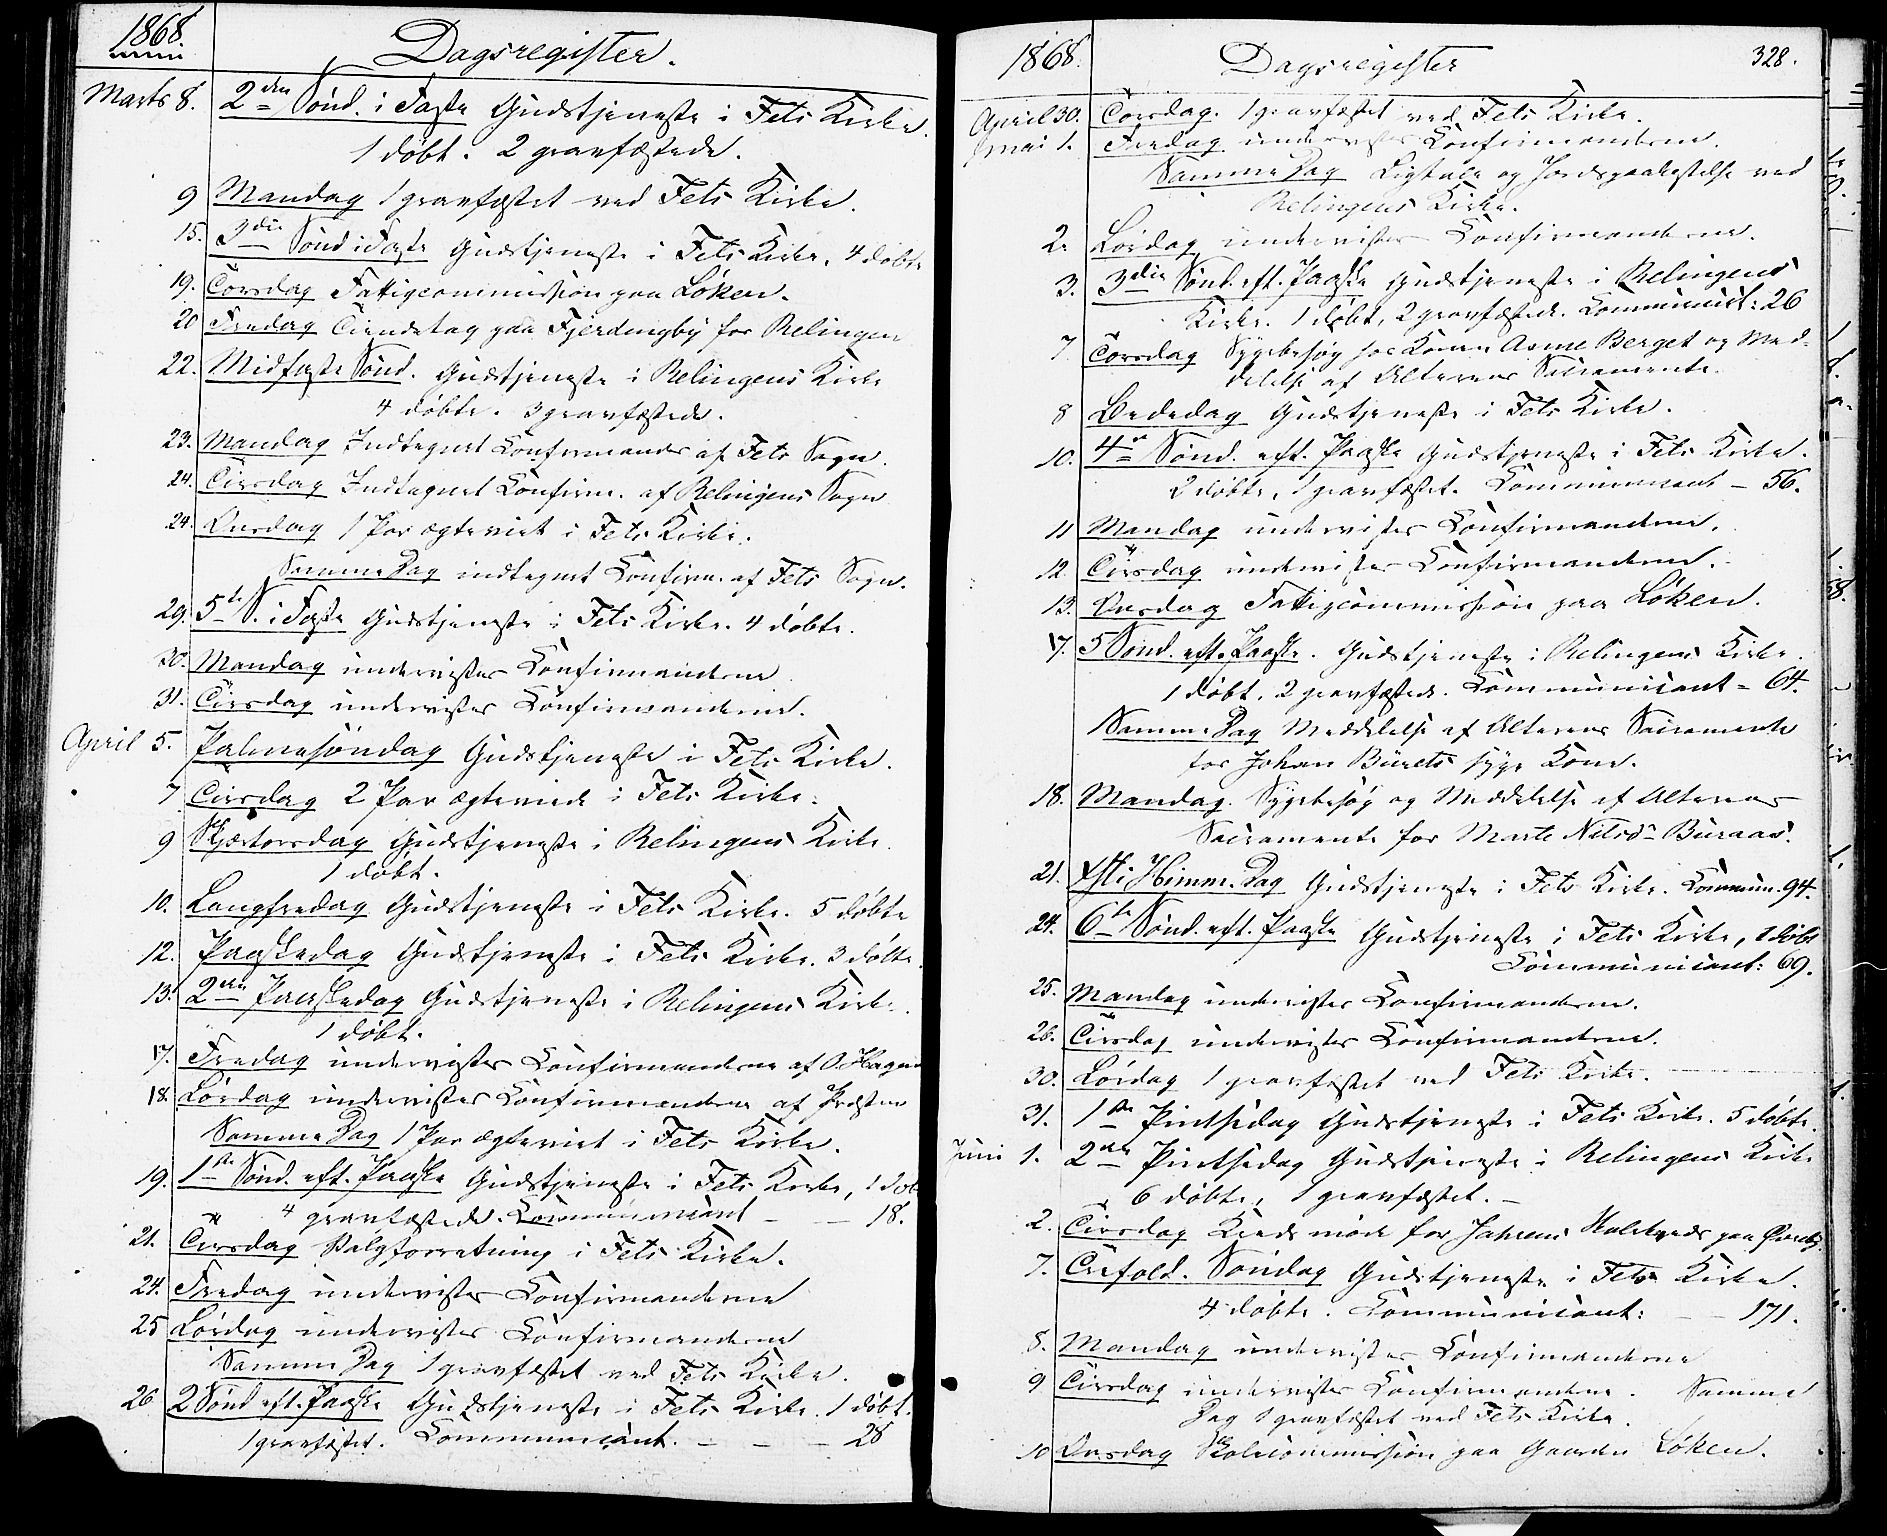 1868.
Dagsregister.
Marts 8. 2den Sønd. i Faste Gudstjeneste i Fets Kirke.
1 døbt. 2 gravfæstede.
9 Mandag 1 gravfæstet ved Fets Kirke.
15. 3die Sønd i Faste Gudstjeneste i Fets Kirke, 4 døbte
19. Torsdag Fattigcommission paa Løken.
20 Fredag Tiendetag paa Fjerdingby for Relingen
22. Midfaste Sønd. Gudstjeneste i Relingens Kirke
4 døbte. 3 gravfæstede.
23. Mandag Indtegnet Confirmander af Fets Sogn.
24. Tirsdag Indtegnet Confirm. af Relingens Sogn
24. Onsdag 1 Par ægteviet i Fets Kirke.
Samme Dag indtegnet Confirm. af Fets Sogn.
29. 5te S. i Faste Gudstjeneste i Fets Kirke. 4 døbte.
30. Mandag undervistes Confirmanderne
31. Tirsdag undervistes Confirmanderne.
April 5. Palmesøndag Gudstjeneste i Fets Kirke.
7 Tirsdag 2 Par ægteviede i Fets Kirke.
9 Skjærtorsdag Gudstjeneste i Relingens Kirke.
1 døbt.
10. Langfredag Gudstjeneste i Fets Kirke. 5 døbte
12. Paaskedag Gudstjeneste i Fets Kirke. 3 døbte.
13. 2den Paaskedag Gudstjeneste i Relingens Kirke.
1 døbt.
17. Fredag undervistes Confirmanderne af O. Hagen
18. Lørdag undervistes Confirmanderne af Præsten
Samme Dag 1 Par ægteviet i Fets Kirke.
19. 1ste Sønd. eft. Paaske Gudstjeneste i Fets Kirke, 1 døb
4 gravfæstede. Communicant - - 18.
21. Tirsdag Valgforretning i Fets Kirke.
24. Fredag undervistes Confirmanderne
25 Lørdag undervistes Confirmanderne
Samme Dag 1 gravfæstet ved Fets Kirke.
26 2 Sønd eft. Paaske Gudstjeneste i Fets Kirke. 1 døbt.
1 gravfæstet. Communicant. - - - 28
1868.
Dagsregister
328.
April 30. Torsdag. 1 gravfæstet ved Fets Kirke.
Mai 1. Fredag undervistes Confirmanderne.
Samme Dag Ligtale og Jordspaakastelse ved
Relingens Kirke.
2. Lørdag undervistes Confirmanderne.
3. 3die Sønd. eft. Paaske Gudstjeneste i Relingens
Kirke. 1 døbt, 2 gravfæstede. Communicit: 26
7 Torsdag Sygebesøg hos Konen Anne Berget og Med-
delelse af Alterens Sacramente.
8 Bededag Gudstjeneste i Fets Kirke.
10. 4de Sønd. eft. Paaske Gudstjeneste i Fets Kirke.
2 døbte, 1 gravfæstet. Communicant - 56.
11 Mandag undervistes Confirmanderne.
12. Tirsdag undervistes Confirmanderne.
13. Onsdag Fattigcommission paa Løken.
17. 5 Sønd. eft. Paaske. Gudstjeneste i Relingens Kirke.
1 døbt, 2 gravfæstede. Communicant - 64.
Samme Dag Meddelelse af Alterens Sacramente
for Johan Bürets syge Kone.
18. Mandag. Sygebesøg og Meddelelse af Alterens
Sacramente for Marte Nilsdr Buraas.
21. Xsti Himm. Dag Gudstjeneste i Fets Kirke. Commun. 94.
24. 6te Sønd. eft. Paaske Gudstjeneste i Fets Kirke, 1 døbt
Communicant: 69.
25. Mandag undervistes Confirmanderne.
26. Tirsdag undervistes Confirmanderne.
30. Lørdag 1 gravfæstet ved Fets Kirke.
31. 1ste Pintsedag Gudstjeneste i Fets Kirke. 5 døbte.
Juni 1. 2den Pintsedag Gudstjeneste i Relingens Kirke
6 døbte, 1 gravfæstet. -
2. Tirsdag møde for paa
7. Trefold. Søndag Gudstjeneste i Fets Kirke.
4 døbte. Communicant: - - 171.
8. Mandag undervistes Confirmanderne
9 Tirsdag undervistes Confirmanderne. Samme
Dag 1 gravfæstet ved Fets Kirke.
10 Onsdag Skolecommission paa Gaarden Løken.